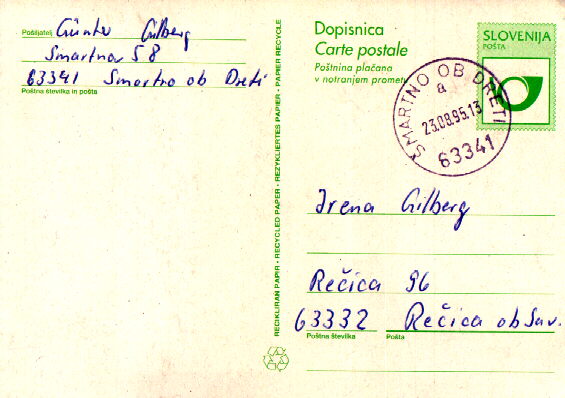 Pošiljatelj Günter Gilberg
Smartno 58
63341 Smartno ob Dreti
Poštna številka in pošta
RECIKLIRAN PAPIR • RECYCLED PAPER • REZYKLIERTES PAPIER • PAPIER RECYCLE
Dopisnica
Carte postale
Poštnina plačana
v notranjem prometu
SLOVENIJA
POŠTA
ŠMARTNO OB DRETI
a
23.08.95.13
63341
Irena Gilberg
Rečica 96
63332 Rečica ob Sav.
Poštna številka Pošta